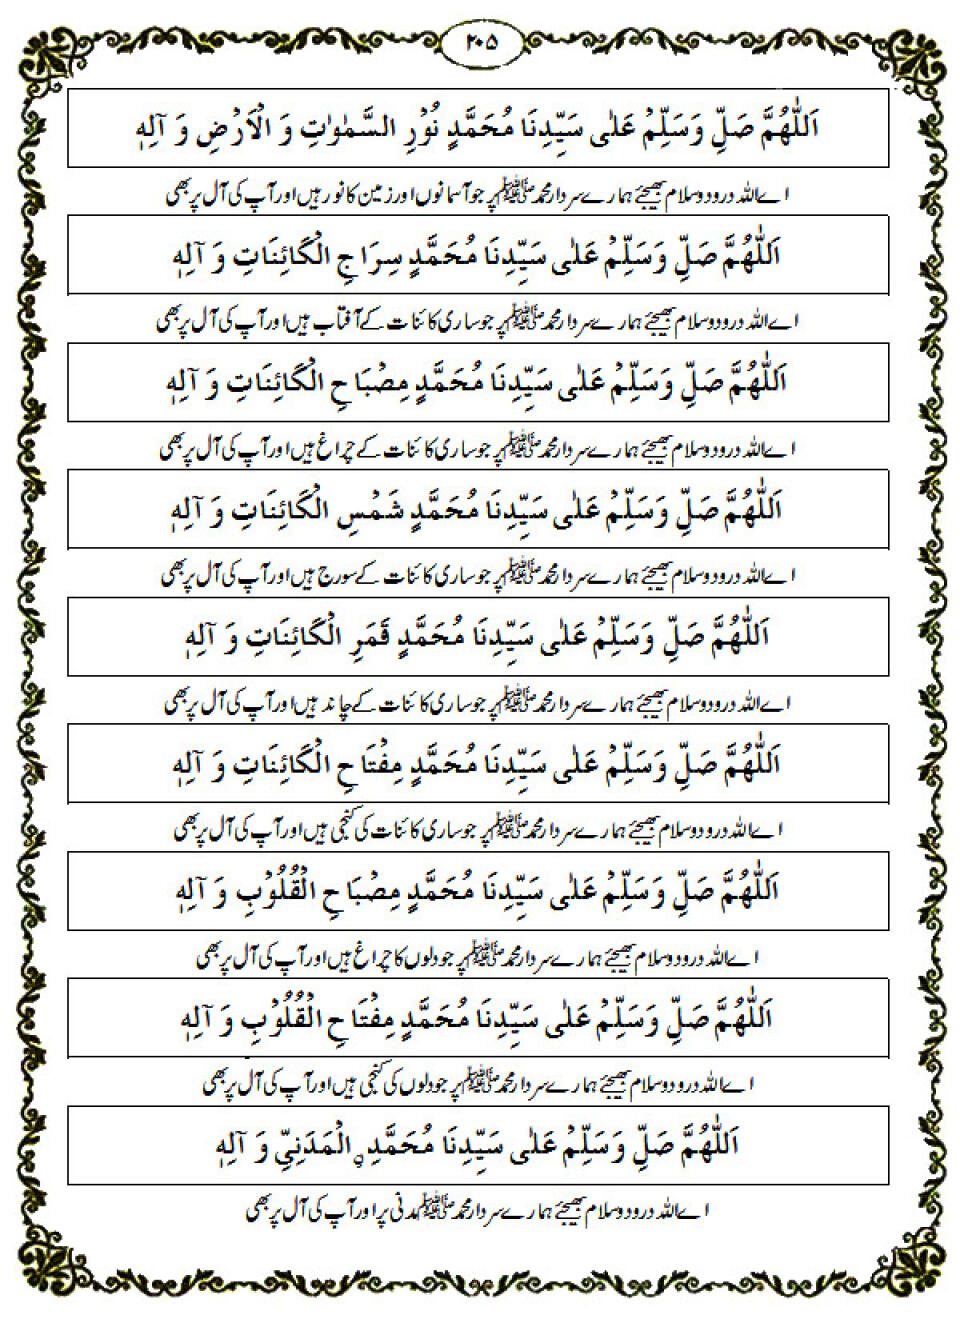 ۲۰۵
اَللّٰهُمَّ صَلِّ وَسَلِّمْ عَلٰى سَيِّدِنَا مُحَمَّدٍ نُوْرِ السَّمٰوٰتِ وَ الْاَرْضِ وَ آلِهٖ
اے اللہ درود و سلام بھیجئے ہمارے سردار محمد ﷺ پر جو آسمانوں اور زمین کا نور ہیں اور آپ کی آل پر بھی
اَللّٰهُمَّ صَلِّ وَسَلِّمْ عَلٰى سَيِّدِنَا مُحَمَّدٍ سِرَاجِ الْكَائِنَاتِ وَ آلِهٖ
اے اللہ درود و سلام بھیجئے ہمارے سردار محمد ﷺ پر جو ساری کائنات کے آفتاب ہیں اور آپ کی آل پر بھی
اَللّٰهُمَّ صَلِّ وَسَلِّمْ عَلٰى سَيِّدِنَا مُحَمَّدٍ مِصْبَاحِ الْكَائِنَاتِ وَ آلِهٖ
اے اللہ درود و سلام بھیجئے ہمارے سردار محمد ﷺ پر جو ساری کائنات کے چراغ ہیں اور آپ کی آل پر بھی
اَللّٰهُمَّ صَلِّ وَسَلِّمْ عَلٰى سَيِّدِنَا مُحَمَّدٍ شَمْسِ الْكَائِنَاتِ وَ آلِهٖ
اے اللہ درود و سلام بھیجئے ہمارے سردار محمد ﷺ پر جو ساری کائنات کے سورج ہیں اور آپ کی آل پر بھی
اَللّٰهُمَّ صَلِّ وَسَلِّمْ عَلٰى سَيِّدِنَا مُحَمَّدٍ قَمَرِ الْكَائِنَاتِ وَ آلِهٖ
اے اللہ درود و سلام بھیجئے ہمارے سردار محمد ﷺ پر جو ساری کائنات کے چاند ہیں اور آپ کی آل پر بھی
اَللّٰهُمَّ صَلِّ وَسَلِّمْ عَلٰى سَيِّدِنَا مُحَمَّدٍ مِفْتَاحِ الْكَائِنَاتِ وَ آلِهٖ
اے اللہ درود و سلام بھیجئے ہمارے سردار محمد ﷺ پر جو ساری کائنات کی کنجی ہیں اور آپ کی آل پر بھی
اَللّٰهُمَّ صَلِّ وَسَلِّمْ عَلٰى سَيِّدِنَا مُحَمَّدٍ مِصْبَاحِ الْقُلُوْبِ وَ آلِهٖ
اے اللہ درود و سلام بھیجئے ہمارے سردار محمد ﷺ پر جو دلوں کا چراغ ہیں اور آپ کی آل پر بھی
اَللّٰهُمَّ صَلِّ وَسَلِّمْ عَلٰى سَيِّدِنَا مُحَمَّدٍ مِفْتَاحِ الْقُلُوْبِ وَ آلِهٖ
اے اللہ درود و سلام بھیجئے ہمارے سردار محمد ﷺ پر جو دلوں کی کنجی ہیں اور آپ کی آل پر بھی
اَللّٰهُمَّ صَلِّ وَسَلِّمْ عَلٰى سَيِّدِنَا مُحَمَّدِ ۣالْمَدَنِيِّ وَ آلِهٖ
اے اللہ درود و سلام بھیجئے ہمارے سردار محمد ﷺ مدنی پر اور آپ کی آل پر بھی